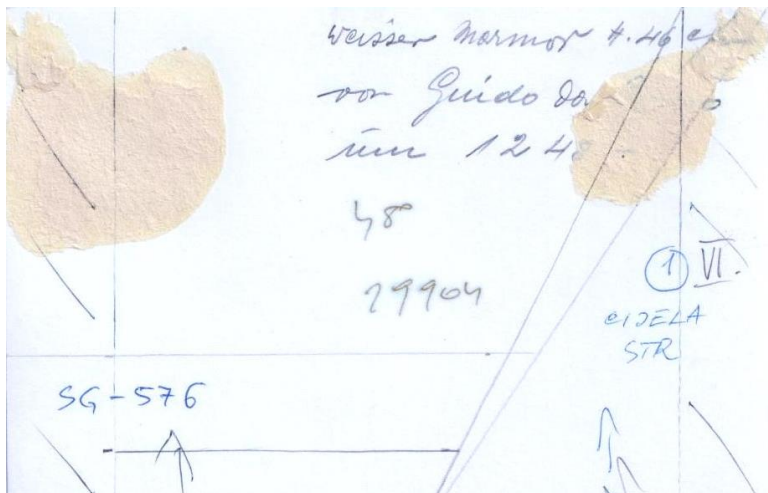 weisser Marmor H. 46 c
von Guido da
um 1248
48
29904
1 VI.
CIJELA
STR
SG-576